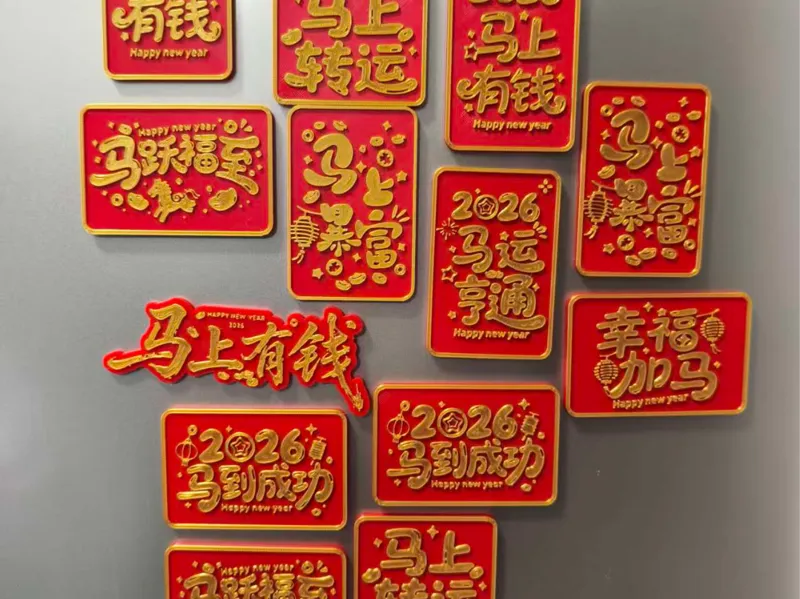 有钱
Happy new year
马上
转运
马上
有钱
Happy new year
Happy new year
马跃福至
马上
暴富
2026
马运
亨通
Happy new year
马上
暴富
HAPPY NEW YEAR
2026
马上有钱
幸福
加马
Happy new year
2026
马到成功
Happy new year
2026
马到成功
Happy new year
Happy new year
马跃福至
马上
转运